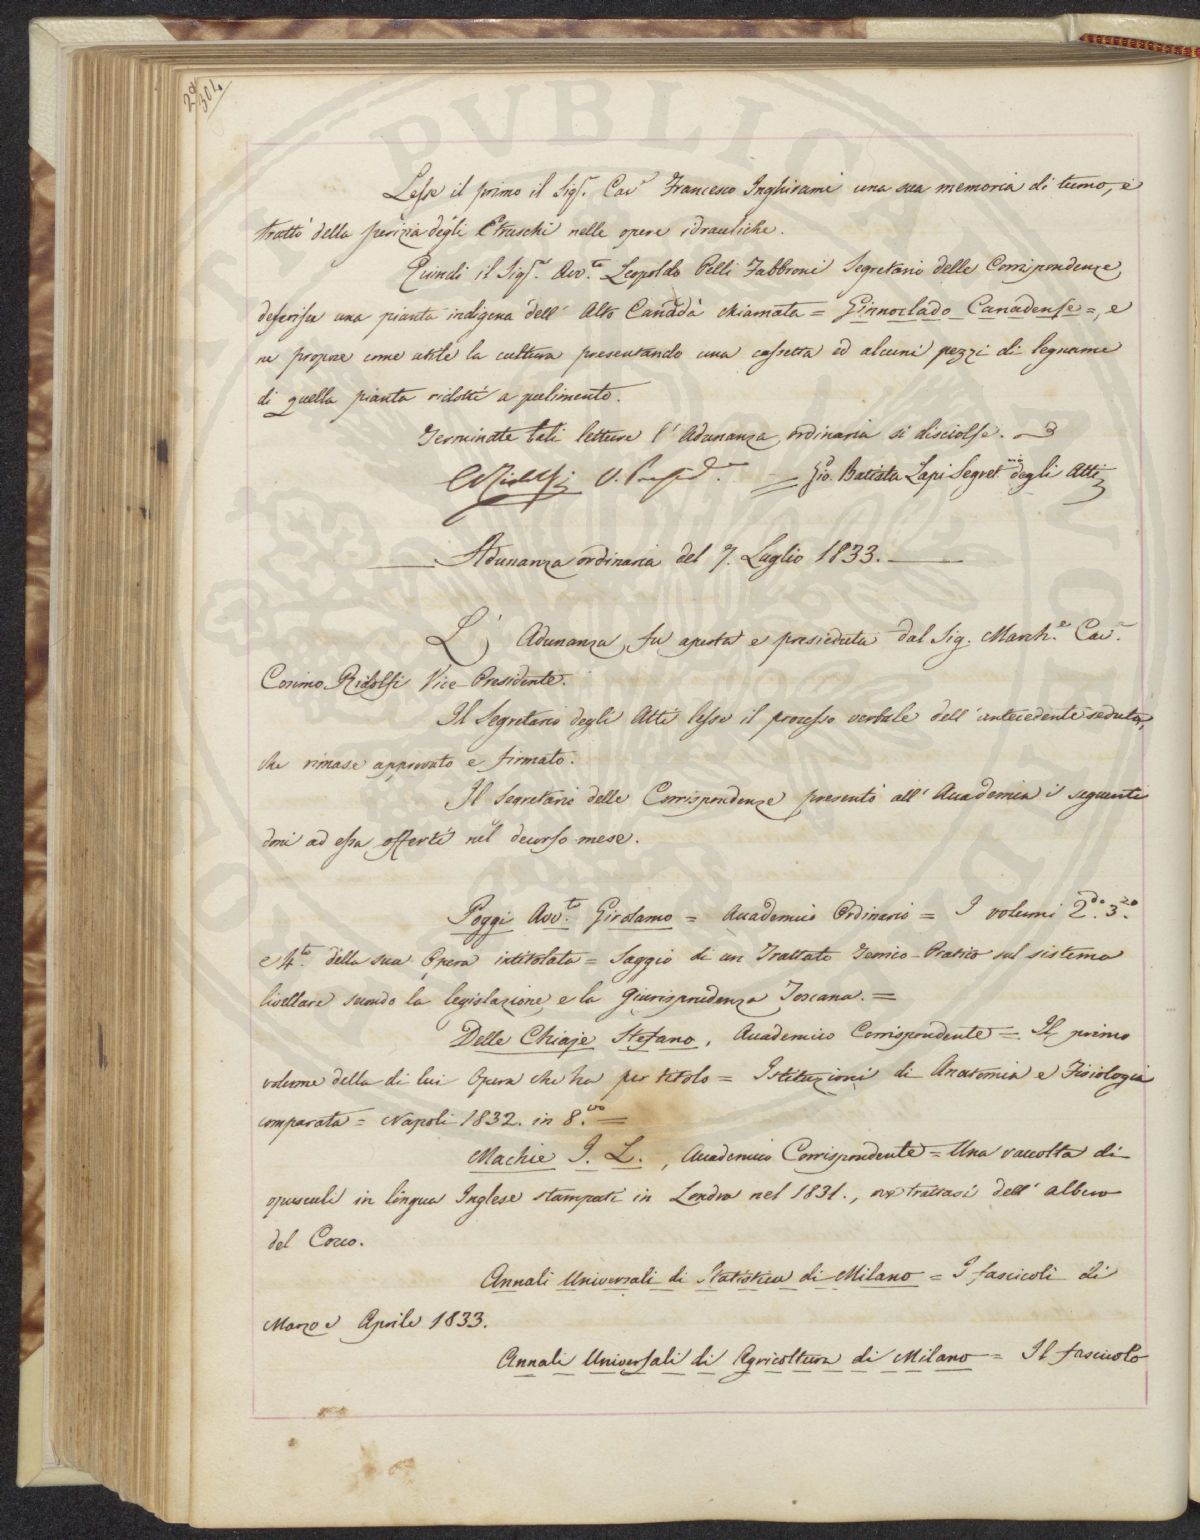 301.
Lesse il primo il Sigr. Cavr Francesco Inghirami una sua memoria di turno, e
trattò della perizia degli Etruschi nelle opere idrauliche.
Quindi il Sigr. Avv.to Leopoldo Pelli Fabbroni Segretario delle Corrispondenze,
descrisse una pianta indigena dell' Alto Canadà chiamata = Ginnoclado Canadense =, e
ne propose come utile la cultura presentando una cassetta ed alcuni pezzi di legname
di quella pianta ridotti a pulimento.
Terminate tali letture l' Adunanza ordinaria si disciolse.
CRidolfi V. Presid.
Gio. Battista Lapi Segret.rio degli Atti
Adunanza ordinaria del 7. Luglio 1833.
L' Adunanza fu aperta e presieduta dal Sig. March.e Cav.r
Cosimo Ridolfi Vice Presidente.
Il Segretario degli Atti lesse il processo verbale dell' antecedente seduta,
che rimase approvato e firmato.
Il Segretario delle Corrispondenze presentò all' Accademia i seguenti
doni ad essa offerti nel decorso mese.
Poggi Avv.to Girolamo = Accademico Ordinario = I volumi 2.do 3.zo
e 4.to della sua Opera intitolata = Saggio di un Trattato Teorico-Pratico sul sistema
livellare secondo la legislazione, e la Giurisprudenza Toscana. =
Delle Chiaje Stefano, Accademico Corrispondente = Il primo
volume della di lui Opera che ha per titolo = Istituzioni di Anatomia e Fisiologia
comparata = Napoli 1832. in 8.vo =
Machie J. L., Accademico Corrispondente = Una raccolta di
opuscoli in lingua Inglese stampati in Londra nel 1831., ove trattasi dell' albero
del Cocco.
Annali Universali di Statistica di Milano = I fascicoli di
Marzo e Aprile 1833.
Annali Universali di Agricoltura di Milano = Il fascicolo